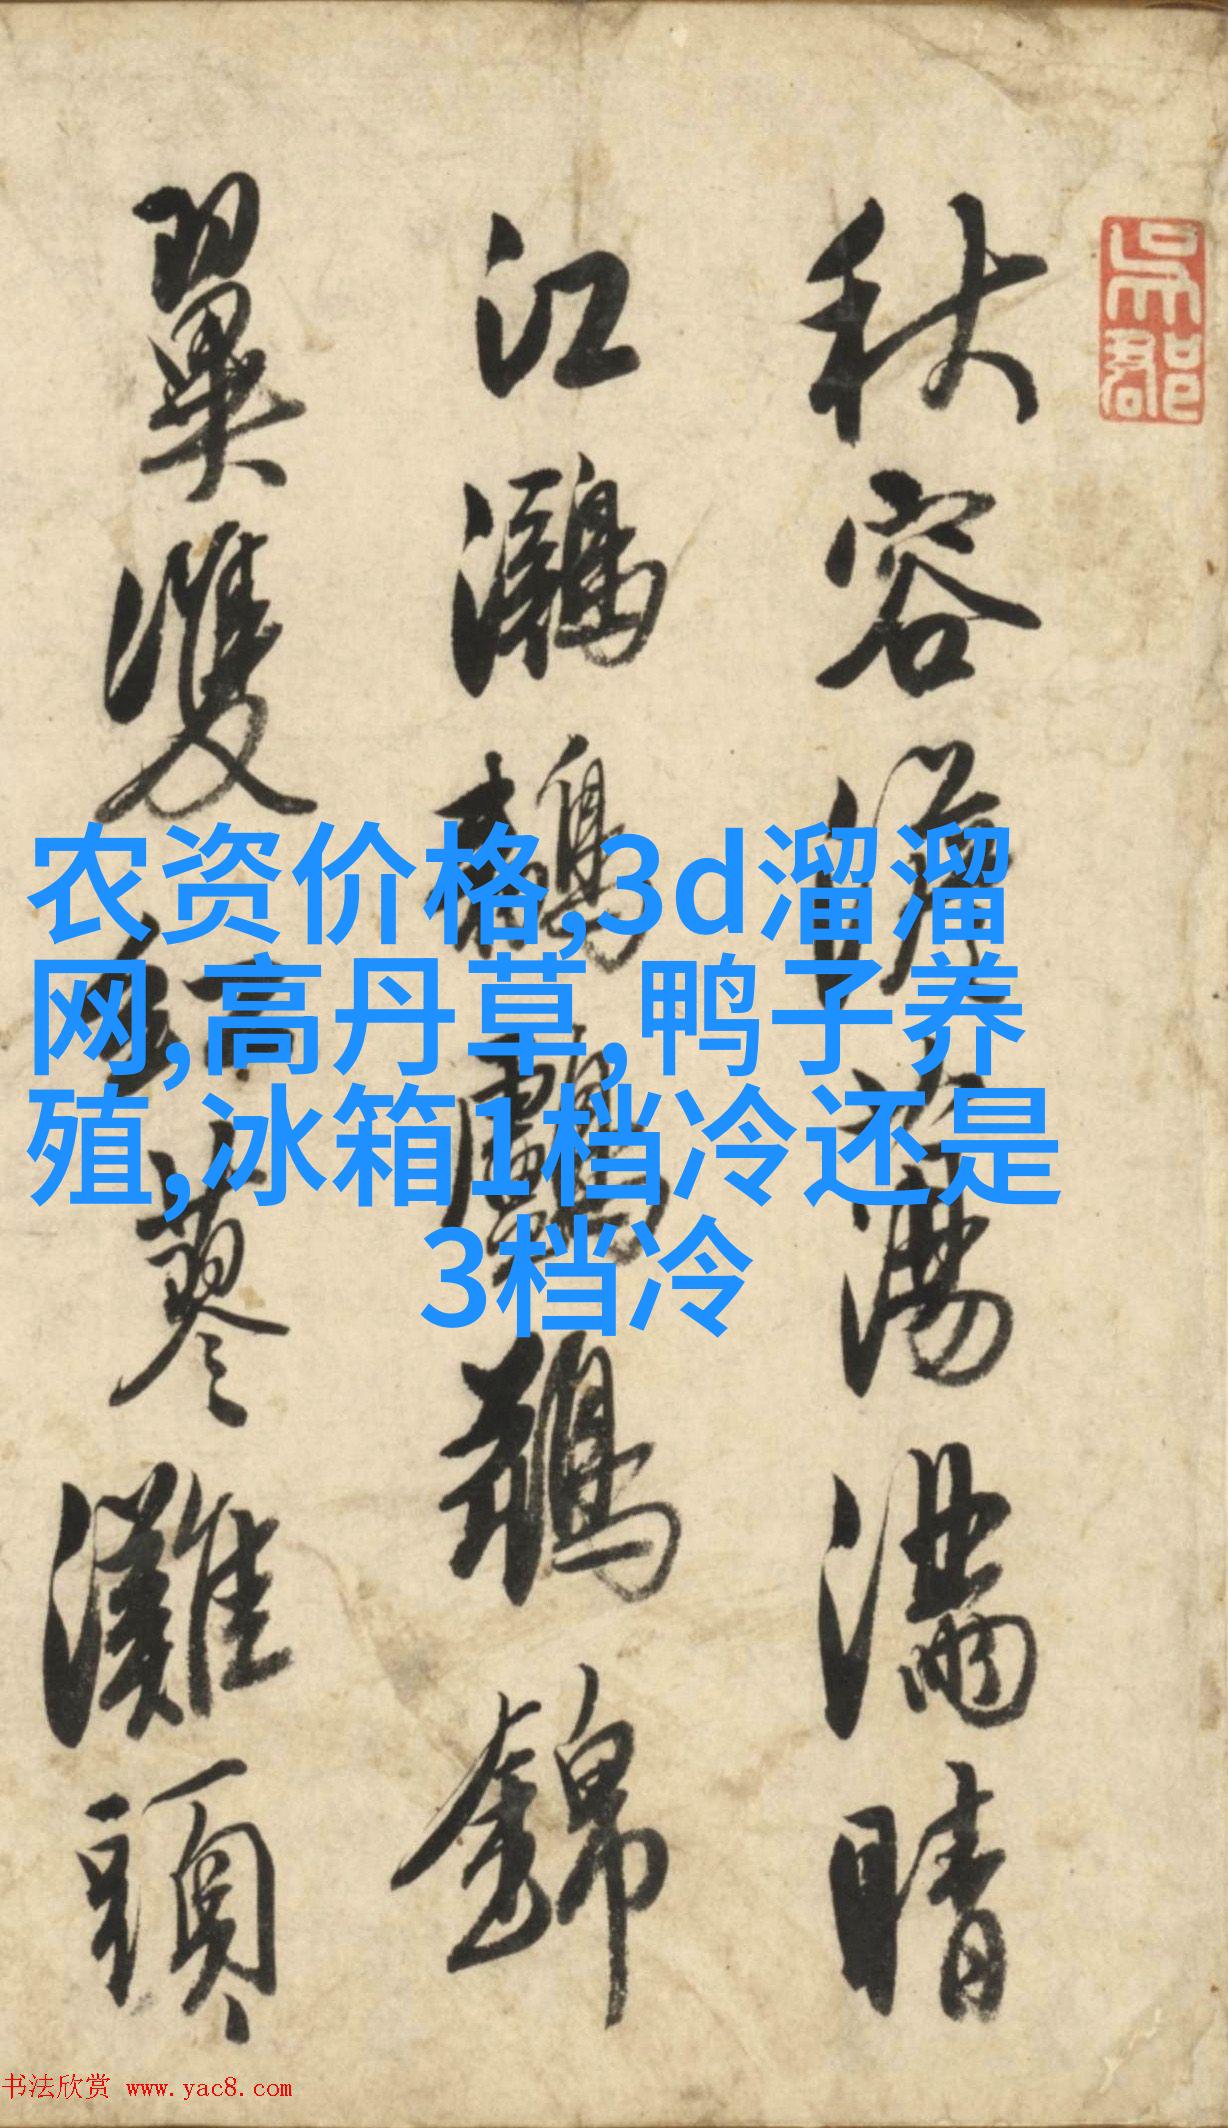 吳郡
秋容澹蕩滿晴
江鸂鶒鸕鶿錦
翼雙紅蓼灘頭
农资价格,3d溜溜
网,高丹草,鸭子养
殖,冰箱1档冷还是
3档冷
书法欣赏 www.yac8.com